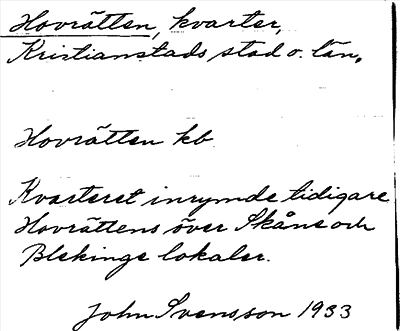 Hovrätten, kvarter,
Kristianstads stad o. län.
Hovrätten kb
Kvarteret inrymde tidigare
Hovrättens över Skåne och
Blekinge lokaler.
John Svensson 1933